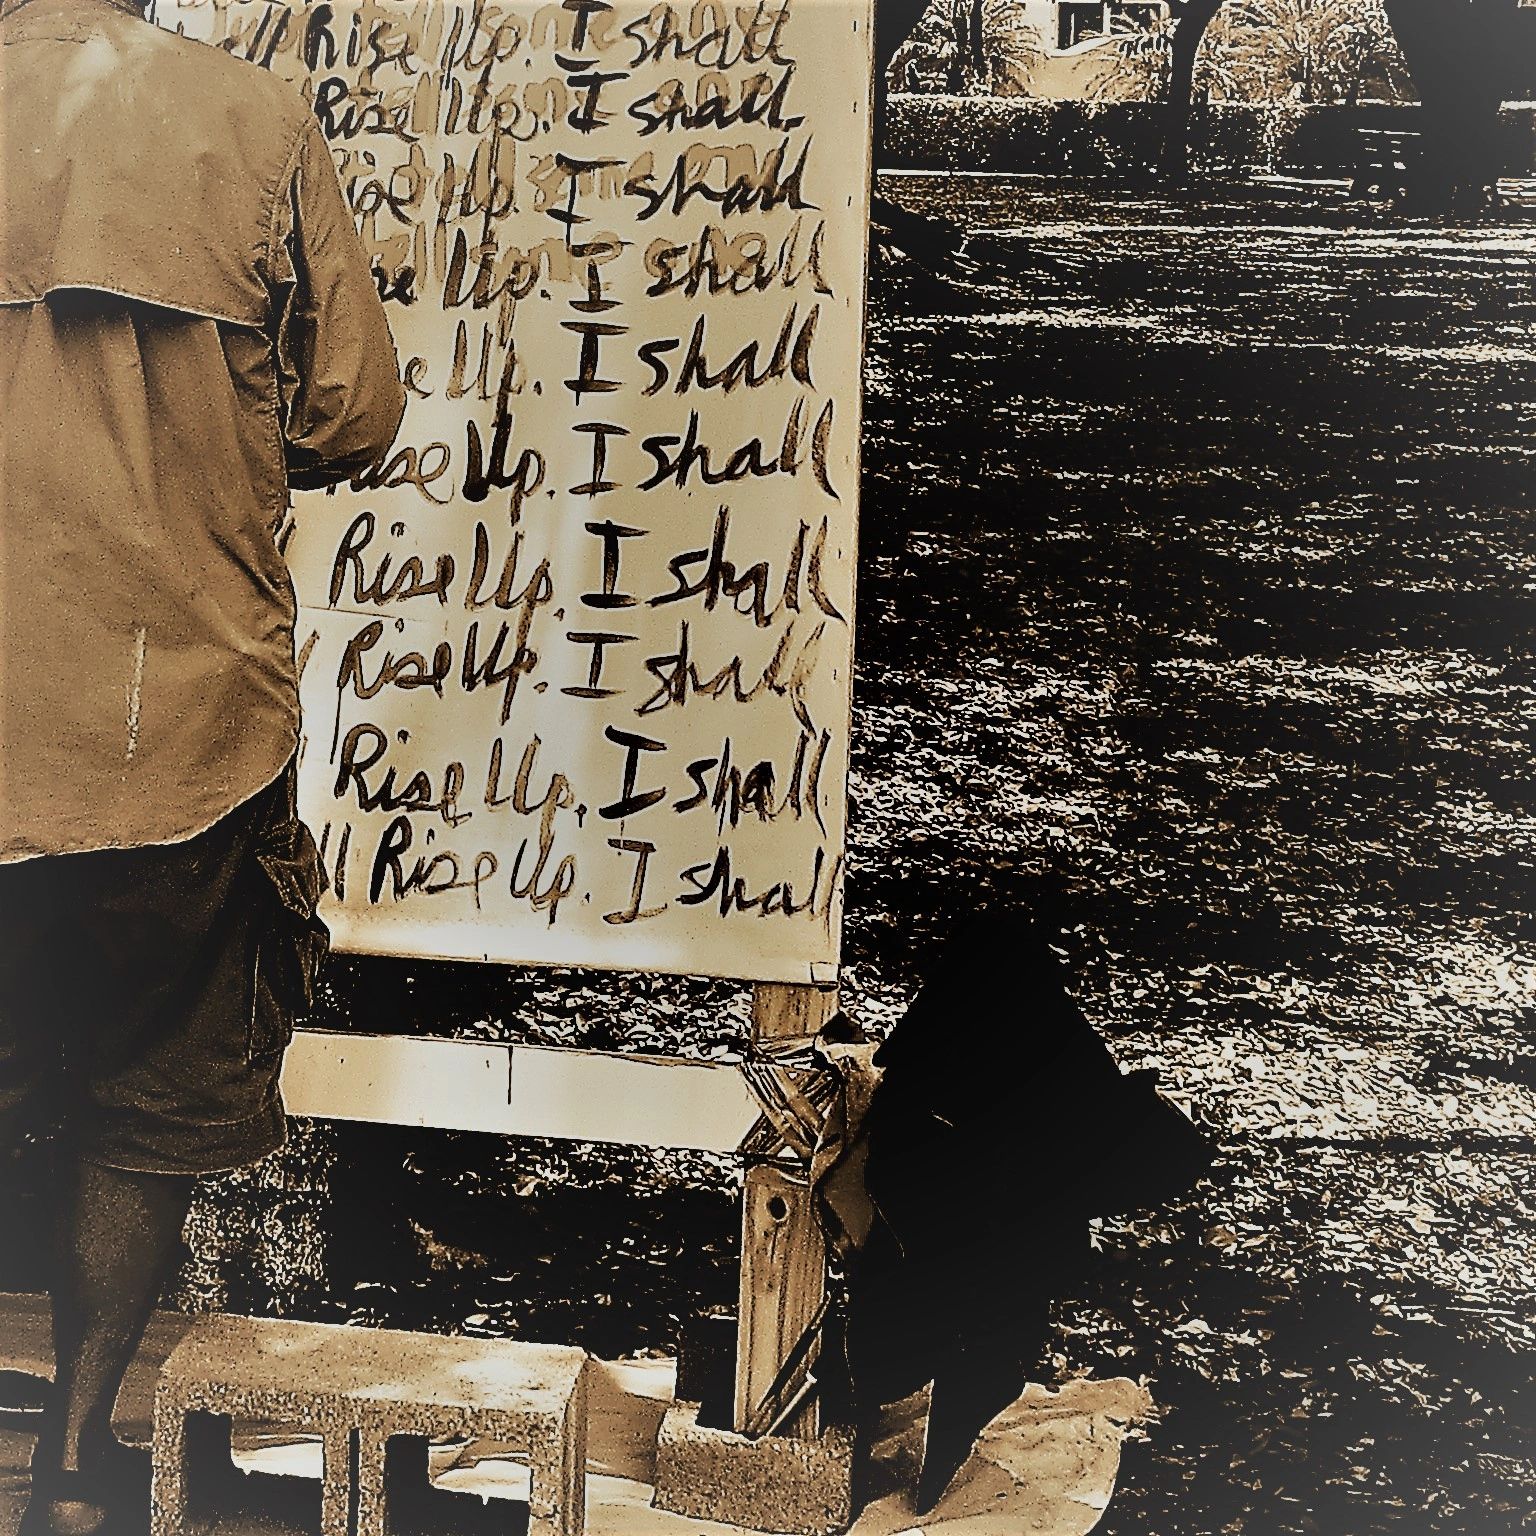 Rise Up. I shall
Rise Up. I shall
Up. I shall
Up. I shall
Up. I shall
Up. I shall
Rise Up. I shall
Rise Up. I shall
Rise Up. I shall
ll Rise Up. I shall